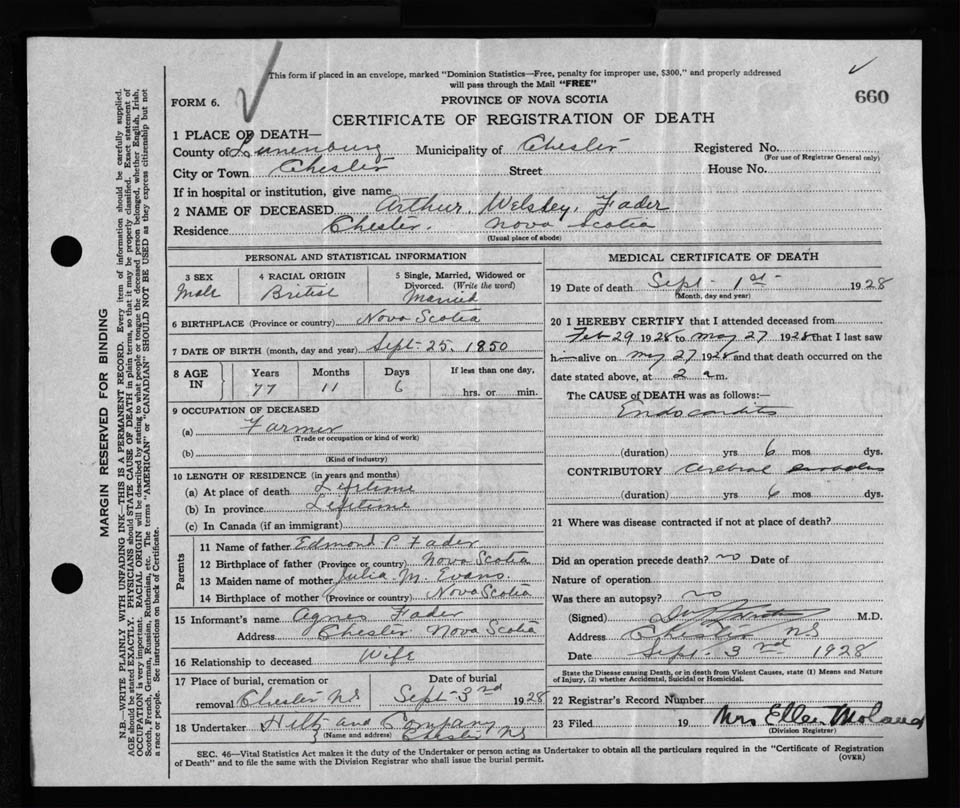 This form if placed in an envelope, marked "Dominion Statistics—Free, penalty for improper use, $300," and properly addressed
will pass through the Mail "FREE"
FORM 6.
PROVINCE OF NOVA SCOTIA
660
CERTIFICATE OF REGISTRATION OF DEATH
1 PLACE OF DEATH—
County of Lunenburg Municipality of Chester Registered No.
(For use of Registrar General only)
City or Town Chester Street House No.
If in hospital or institution, give name
2 NAME OF DECEASED Arthur Fader
Residence Chester. Nova Scotia
(Usual place of abode)
PERSONAL AND STATISTICAL INFORMATION
3 SEX
Male
4 RACIAL ORIGIN
British
5 Single, Married, Widowed or
Divorced. (Write the word)
Married
6 BIRTHPLACE (Province or country) Nova Scotia
7 DATE OF BIRTH (month, day and year) Sept. 25. 1850
8 AGE IN
Years Months Days If less than one day,
77 11 6 hrs. or min.
9 OCCUPATION OF DECEASED
(a) Farmer
(Trade or occupation or kind of work)
(b)
(Kind of industry)
10 LENGTH OF RESIDENCE (in years and months)
(a) At place of death Lifetime
(b) In province Lifetime
(c) In Canada (if an immigrant)
Parents
11 Name of father Edmond P. Fader
12 Birthplace of father (Province or country) Nova Scotia
13 Maiden name of mother Julia M. Evans.
14 Birthplace of mother (Province or country) Nova Scotia
15 Informant's name Agnes Fader
Address Chester Nova Scotia
16 Relationship to deceased Wife
17 Place of burial, cremation or
removal Chester N.S
Date of burial
Sept-3rd 1928
18 Undertaker Hiltz and Company
(Name and address) Chester NS
MEDICAL CERTIFICATE OF DEATH
19 Date of death Sept- 1st- 1928
(Month, day and year)
20 I HEREBY CERTIFY that I attended deceased from
Feb 29 1928 to May 27 1928 that I last saw
h im alive on May 27 1928 and that death occurred on the
date stated above, at 2 a m.
The CAUSE of DEATH was as follows:
Endocarditis
(duration) yrs 6 mos dys.
CONTRIBUTORY Cerebral
(duration) yrs 6 mos dys.
21 Where was disease contracted if not at place of death?
Did an operation precede death? no Date of
Nature of operation
Was there an autopsy? no
(Signed) M.D.
Address Chester NS
Date Sept. 3rd 1928
State the Disease causing Death, or in Death from Violent Causes, state (1) Means and Nature
of Injury, (2) whether Accidental, Suicidal or Homicidal.
22 Registrar's Record Number
23 Filed 19 Mrs Ellen
(Division Registrar)
SEC. 46—Vital Statistics Act makes it the duty of the Undertaker or person acting as Undertaker to obtain all the particulars required in the "Certificate of Registration
of Death" and to file the same with the Division Registrar who shall issue the burial permit.
(OVER)
MARGIN RESERVED FOR BINDING
N.B.—WRITE PLAINLY WITH UNFADING INK—THIS IS A PERMANENT RECORD. Every item of information should be carefully supplied.
AGE should be stated EXACTLY. PHYSICIANS should STATE CAUSE OF DEATH in plain terms, so that it may be properly classified. Exact statement of
OCCUPATION is very important. RACIAL ORIGIN will be described by stating to what people or tongue the deceased person belonged, whether English, Irish,
Scotch, French, German, Russian, Ruthenian, etc. The terms "AMERICAN" or "CANADIAN" SHOULD NOT BE USED as they express citizenship but not
a race or people. See instructions on back of Certificate.